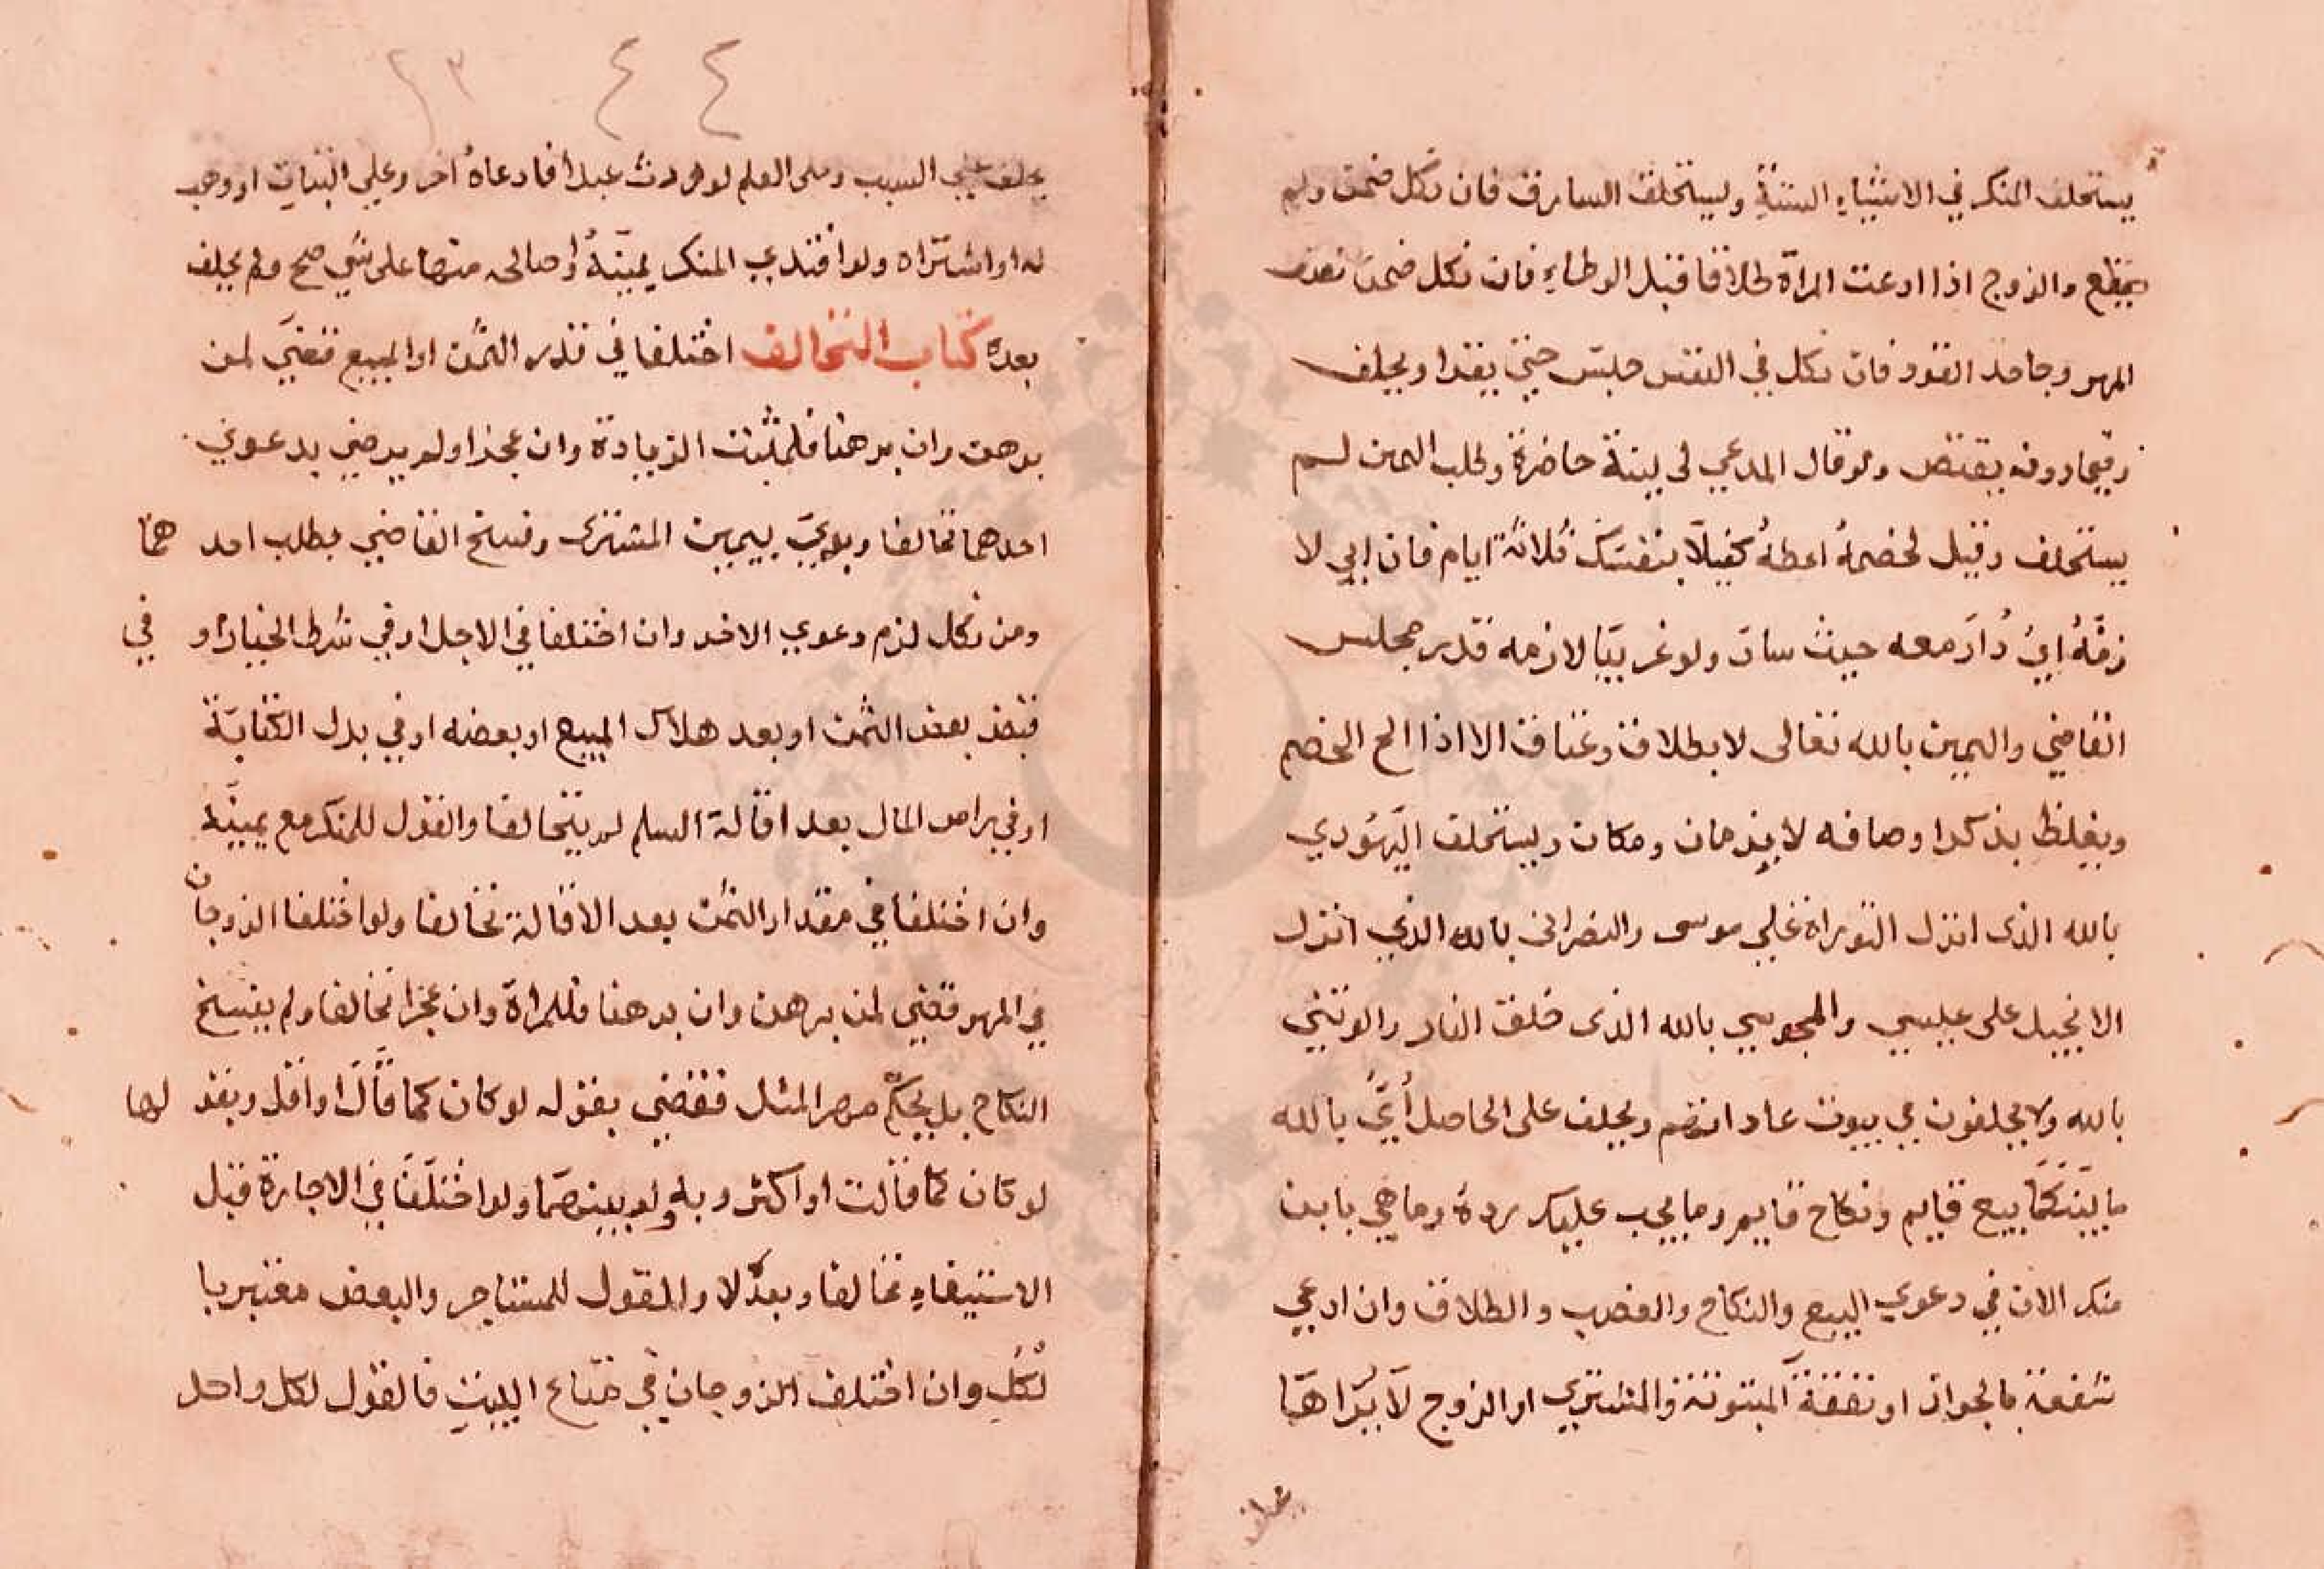 يستحلف المنكر في الاشياء الستة ويستحلف السارق فان نكل ضمن ولم
يقطع والزوج اذا ادعت المراة طلاقا قبل الوطاء فان نكل ضمن نصف
المهر وجاحد القود فان نكل في النفس حبس حتي يقرا ويحلف
وفيما دونه يقتص ولو قال المدعي لي بينة حاضرة وطلب اليمين لم
يستحلف وقيل لخصمه اعطه كفيلا بنفسك ثلاثة ايام فان ابي لا
زمه اي دار معه حيث سار ولو غريبا لازمه قدر مجلس
القاضي واليمين بالله تعالى لا بطلاق وعتاق الا اذا الح الخصم
ويغلظ بذكر اوصافه لا بزمان ومكان ويستحلف اليهودي
بالله الذى انزل التوراة علي موسى والنصرانى بالله الذي انزل
الانجيل على عيسي والمجوسي بالله الذى خلق النار والوثني
بالله ولا يحلفون في بيوت عباداتهم ويحلف على الحاصل اي بالله
ما بيننكما بيع قايم ونكاح قايم وما يجب عليك رده وما هي باين
منك الان في دعوي البيع والنكاح والغصب والطلاق وان ادعي
شفعة بالجوار او نفقة المبتوتة والمشتري او الزوج لا يراها
يحلف
٤٤
يحلف علي السبب وعلى العلم لو ورث عبدا فادعاه اخر وعلي البتات لو وهب
له او اشتراه ولو افتدي المنكر يمينه او صالحه منها على شي صح ولم يحلف
بعده كتاب التحالف اختلفا في قدر الثمن او المبيع قضي لمن
برهن وان برهنا فلمثبت الزيادة وان عجزا ولو يرضي بدعوي
احدهما تحالفا وبدي بيمين المشترى وفسخ القاضي بطلب احد هما
ومن نكل لزم دعوي الاخر وان اختلفا في الاجل او في شرط الخيار او في
قبض بعض الثمن او بعد هلاك المبيع او بعضه او في بدل الكتابة
او في راس المال بعد اقالة السلم لم يتحالفا والقول للمنكر مع يمينه
وان اختلفا في مقدار الثمن بعد الاقالة تحالفا ولو اختلفا الزوجان
في المهر قضي لمن برهن وان برهنا فللمراة وان عجزا تحالفا ولم يفسخ
النكاح بل يحكم مهر المثل فقضي بقوله لو كان كما قال او اقل وبقو لها
لو كان كما قالت او اكثر وبه لو بينهما ولو اختلفا في الاجارة قبل
الاستيفاء تحالفا وبعد لا والقول للمستاجر والبعض معتبر با
لكل وان اختلف الزوجان في متاع البيت فالقول لكل واحد